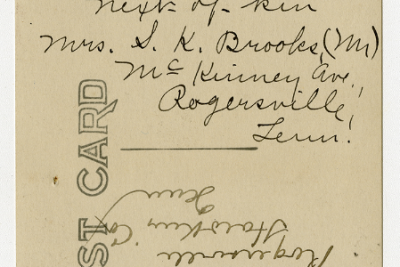 next of kin
Mrs. S. K. Brooks, (M)
Mc Kinney Ave.,
Rogersville,
Tenn.
ST CARD
Rogersville
Hawkins Co
Tenn